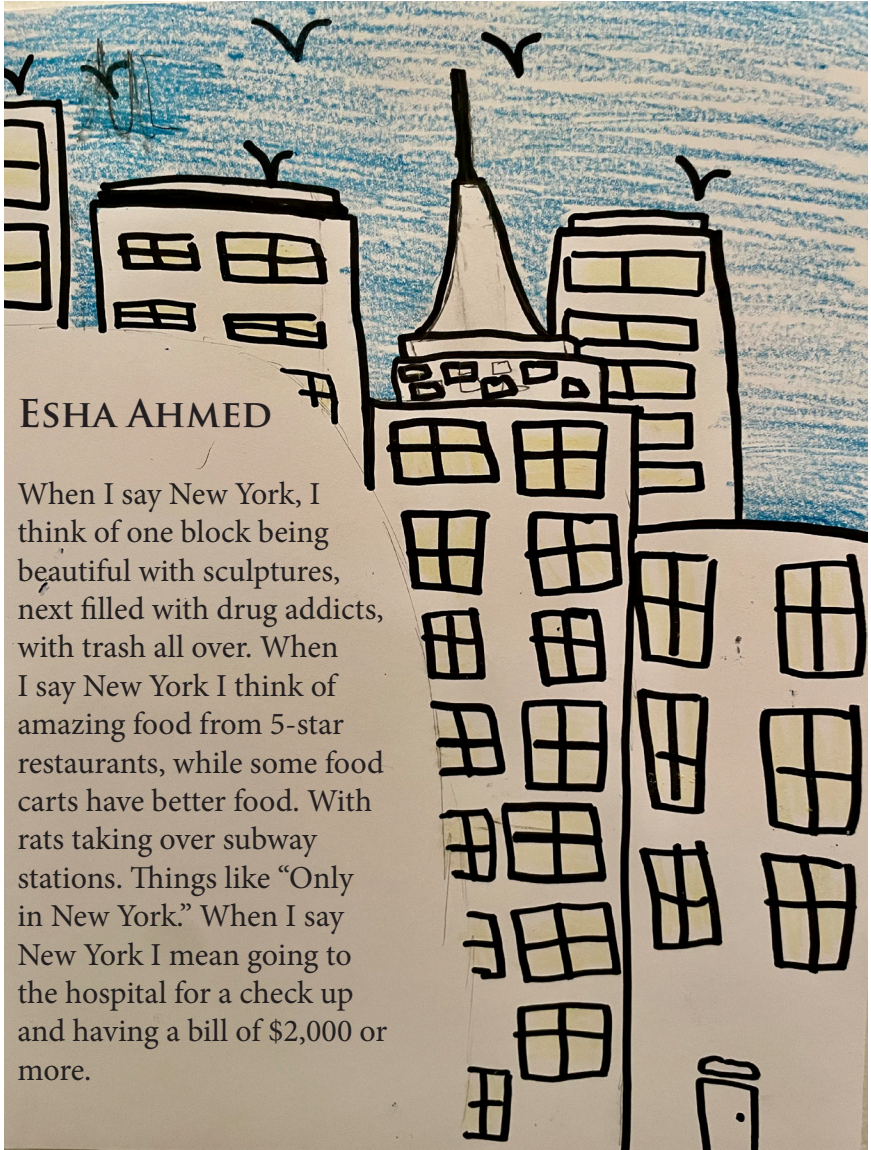 Esha Ahmed
When I say New York, I
think of one block being
beautiful with sculptures,
next filled with drug addicts,
with trash all over. When
I say New York I think of
amazing food from 5-star
restaurants, while some food
carts have better food. With
rats taking over subway
stations. Things like “Only
in New York.” When I say
New York I mean going to
the hospital for a check up
and having a bill of $2,000 or
more.